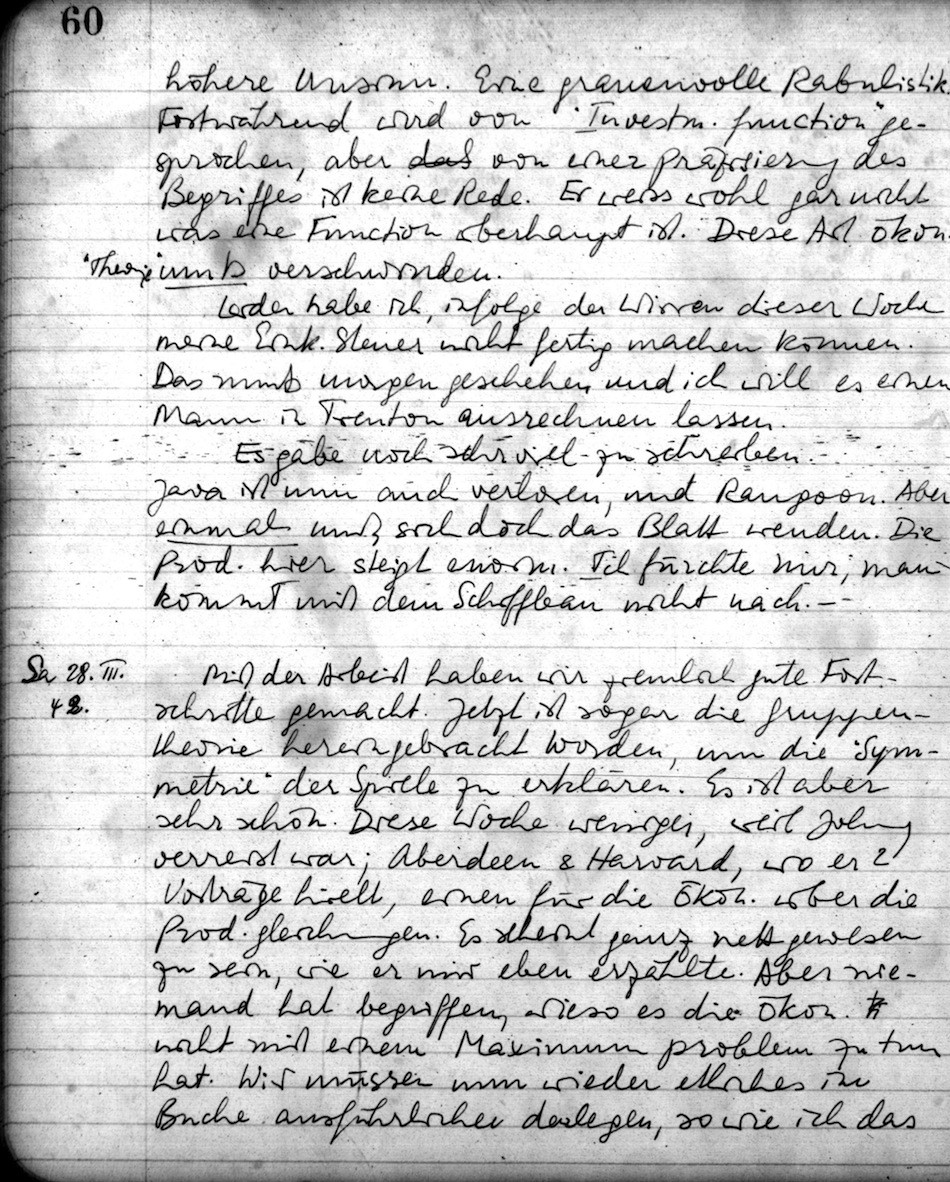 60
höhere Unsinn. Eine grauenvolle Rabulistik.
Fortwährend wird von "Investm. function" ge-
sprochen, aber das von einer Präzisierung des
Begriffes ist keine Rede. Er weiss wohl gar nicht
was eine Function überhaupt ist. Diese Art ökon.
"Theorie" muß verschwinden.
Leider habe ich, infolge der Wirren dieser Woche
meine Eink. Steuer nicht fertig machen können.
Das muß morgen geschehen und ich will es einen
Mann in Trenton ausrechnen lassen.
Es gäbe noch sehr viel zu schreiben.
Java ist nun auch verloren, und Rangoon. Aber
einmal muß sich doch das Blatt wenden. Die
Prod. hier steigt enorm. Ich fürchte nur, man
kommt mit dem Schiffbau nicht nach. —
Sa 28. III.
42.
Mit der Arbeit haben wir ziemlich gute Fort-
schritte gemacht. Jetzt ist sogar die Gruppen-
theorie hereingebracht worden, um die "Sym-
metrie" der Spiele zu erklären. Es ist aber
sehr schön. Diese Woche weniger, weil Johny
verreist war; Aberdeen & Harvard, wo er 2
Vorträge hielt, einen für die Ökon. über die
Prod. gleichungen. Es scheint ganz nett gewesen
zu sein, wie er mir eben erzählte. Aber nie-
mand hat begriffen, wieso es die Ökon.
nicht mit einem Maximum problem zu tun
hat. Wir müssen nun wieder etliches im
Buche ausführlicher darlegen, so wie ich das